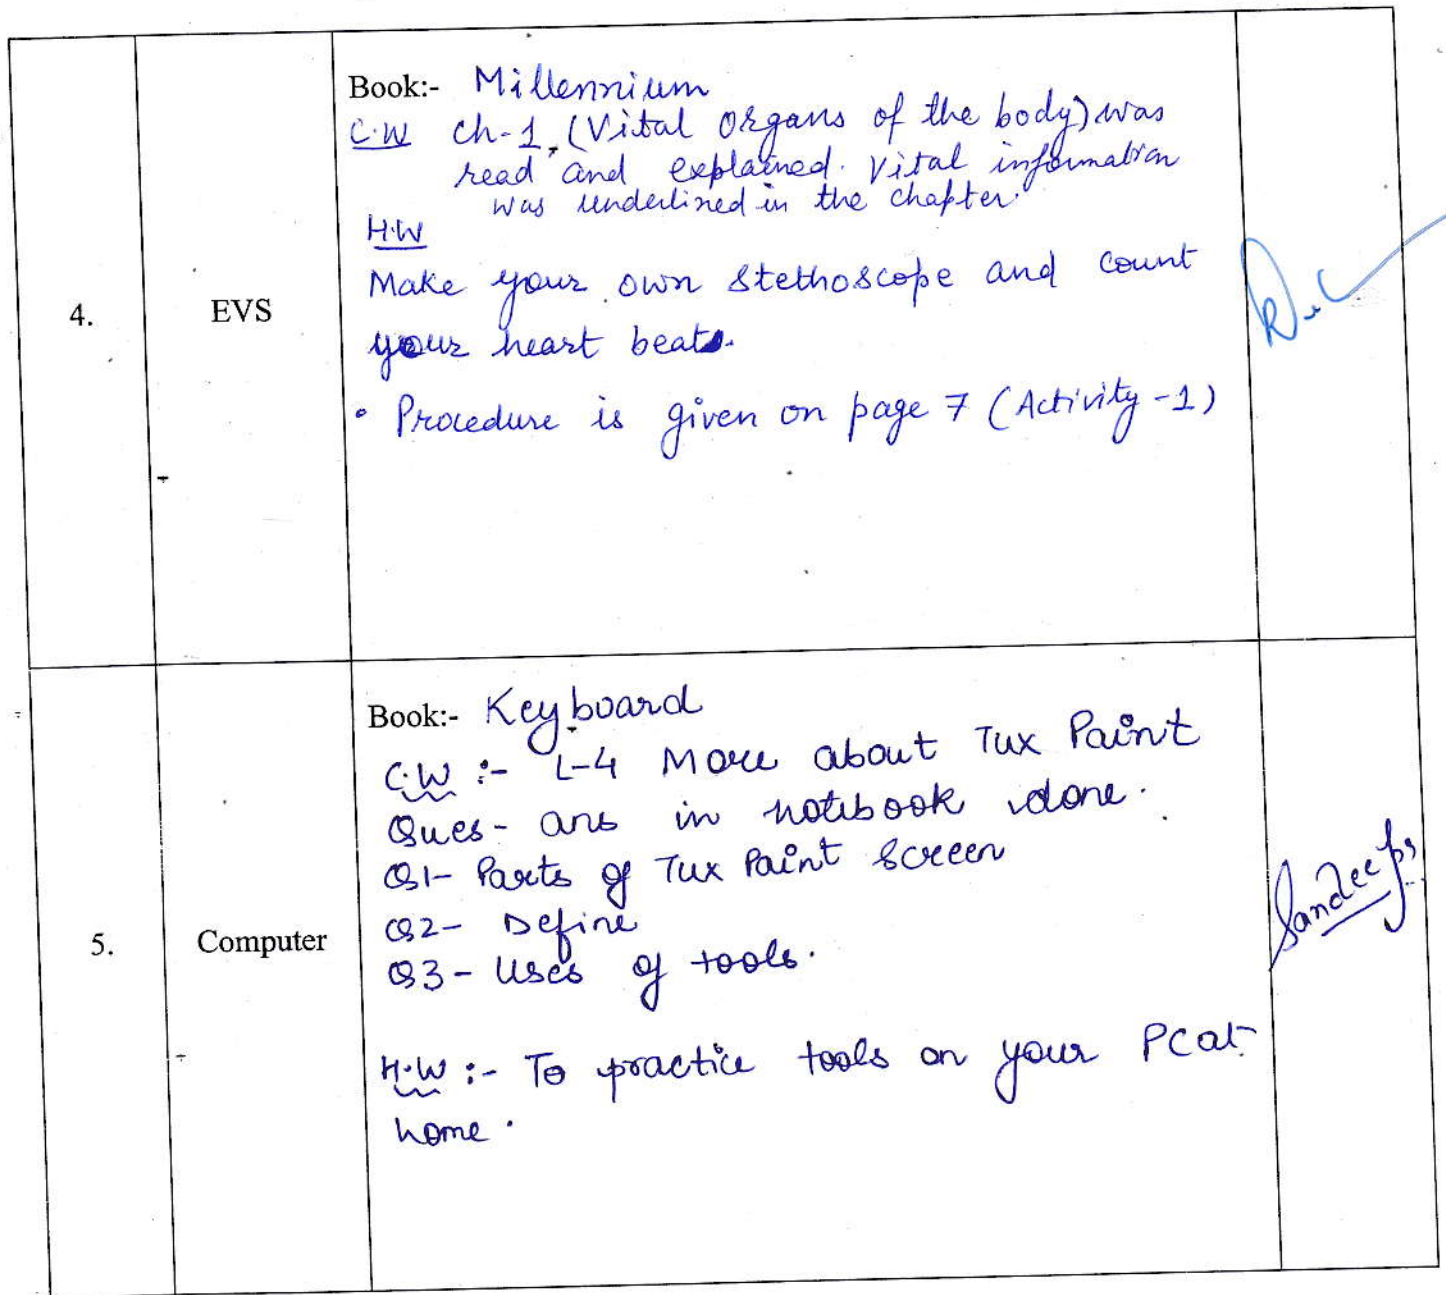 Book:- Millennium
C.W ch-1, (Vital Organs of the body) was
read and explained. Vital information
was underlined in the chapter.
H.W
Make your own stethoscope and count
your heart beats.
4.
EVS
• Procedure is given on page 7 (Activity-1)
Book:- Keyboard
C.W :- L-4 More about Tux Paint
Ques- ans in notebook done.
Q1- Parts of Tux Paint Screen
Q2- Define
Q3- Uses of tools.
5.
Computer
H.W :- To practice tools on your PC at
home.